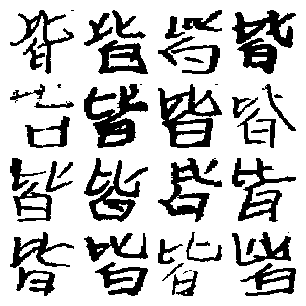 皆皆皆皆
皆皆皆
皆皆皆皆
皆皆皆皆